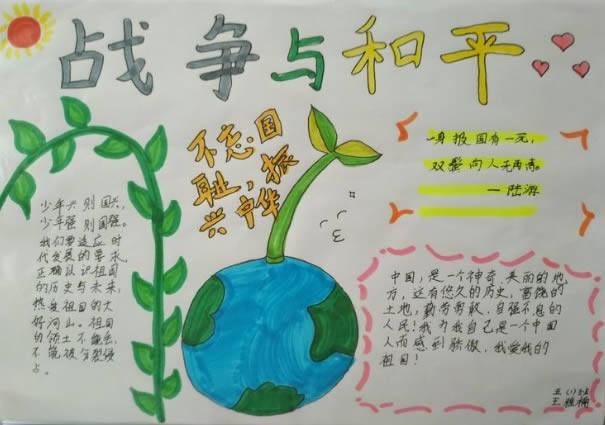 战争与和平
不忘国
耻，振
兴中华
一身报国有一死,
双鬓向人无再青。
—陆游
少年兴则国兴,
少年强则国强。
我们要适应时
代发展的要求,
正确认识祖国
的历史与未来,
热爱祖国的大
好河山。祖国
的领土不能丢,
不能被分裂侵
占。
中国，是一个神奇、美丽的地
方，这有悠久的历史，富饶的
土地，勤劳勇敢、自强不息的
人民！我为我自己是一个中国
人而感到骄傲，我爱我的
祖国！
五(1)班
王雅楠